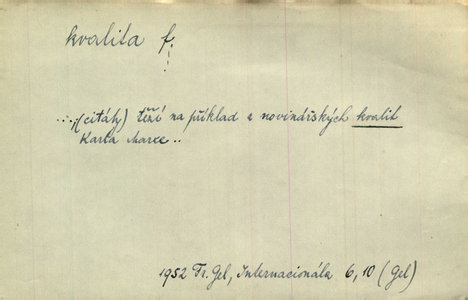 kvalita f.
...(citáty) těží na příklad z novinářských kvalit
Karla Marxe ..
1952 Fr. Gel, Internacionála 6, 10 (Gel)